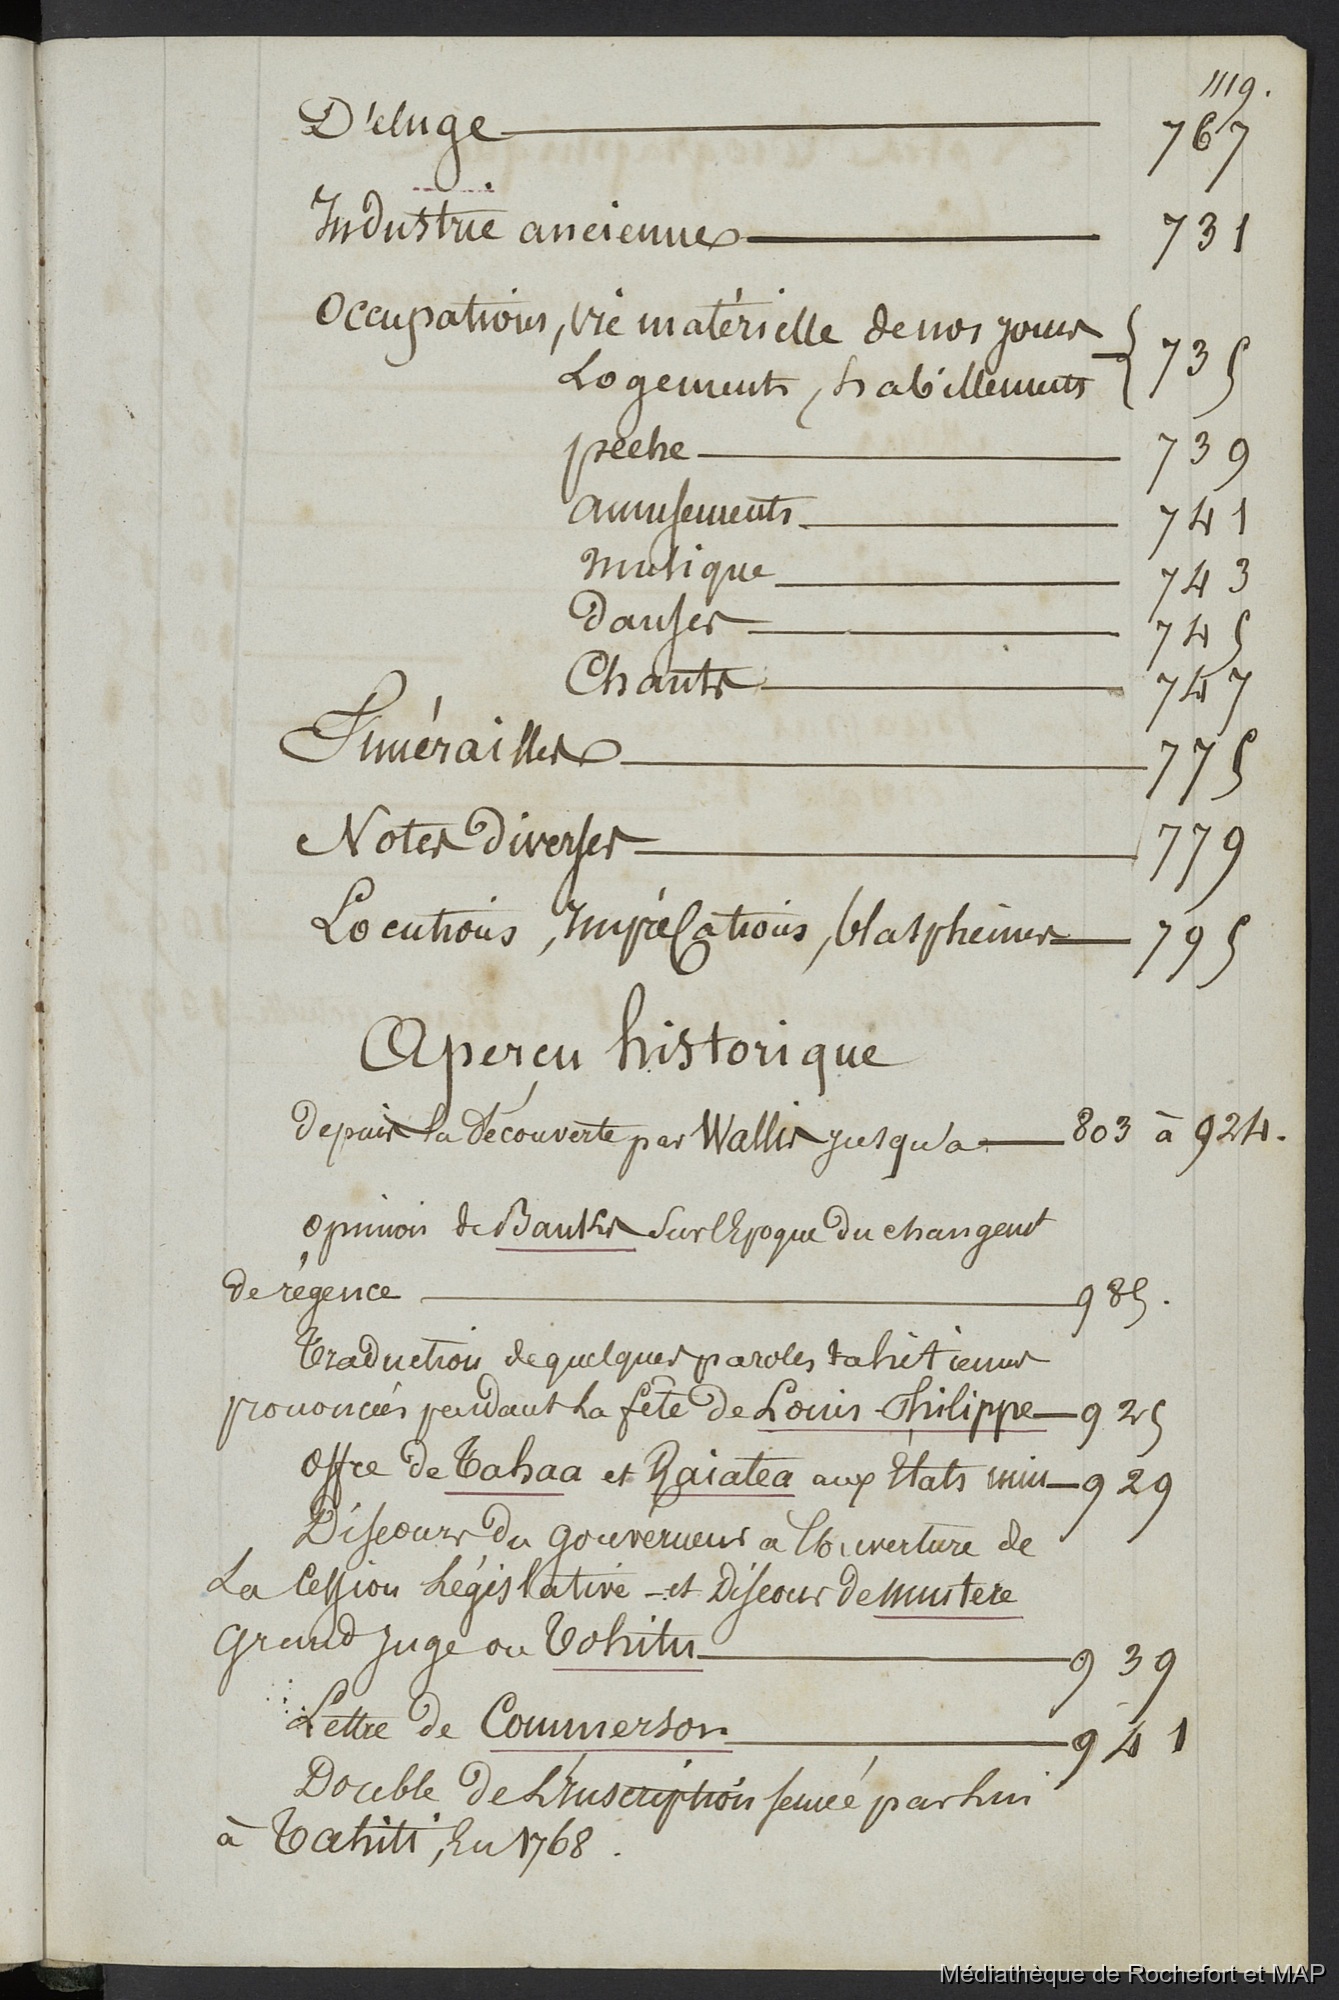 1119.
Déluge 767
Industrie ancienne 731
Occupations, vie matérielle de nos jours
Logements, habillements 735
pêche 739
amusements 741
musique 743
danses 745
Chants 747
Funérailles 775
Notes diverses 779
Locutions, Imprécations, blasphèmes 795
Aperçu historique
depuis la découverte par Wallis jusqu'a 803 à 924.
opinion de Banks sur l'Epoque du changemt
de régence 985.
Traduction de quelques paroles tahitiennes
prononcées pendant la fête de Louis-Philippe 925
offre de Tahaa et Raiatea aux Etats unis 929
Discours du gouverneur a l'ouverture de
La Cession Législative et Discours de
Grand Juge ou Tohitu 939
Lettre de Commerson 941
Double de L'Inscription semée par lui
à Tahiti, En 1768.
Médiathèque de Rochefort et MAP